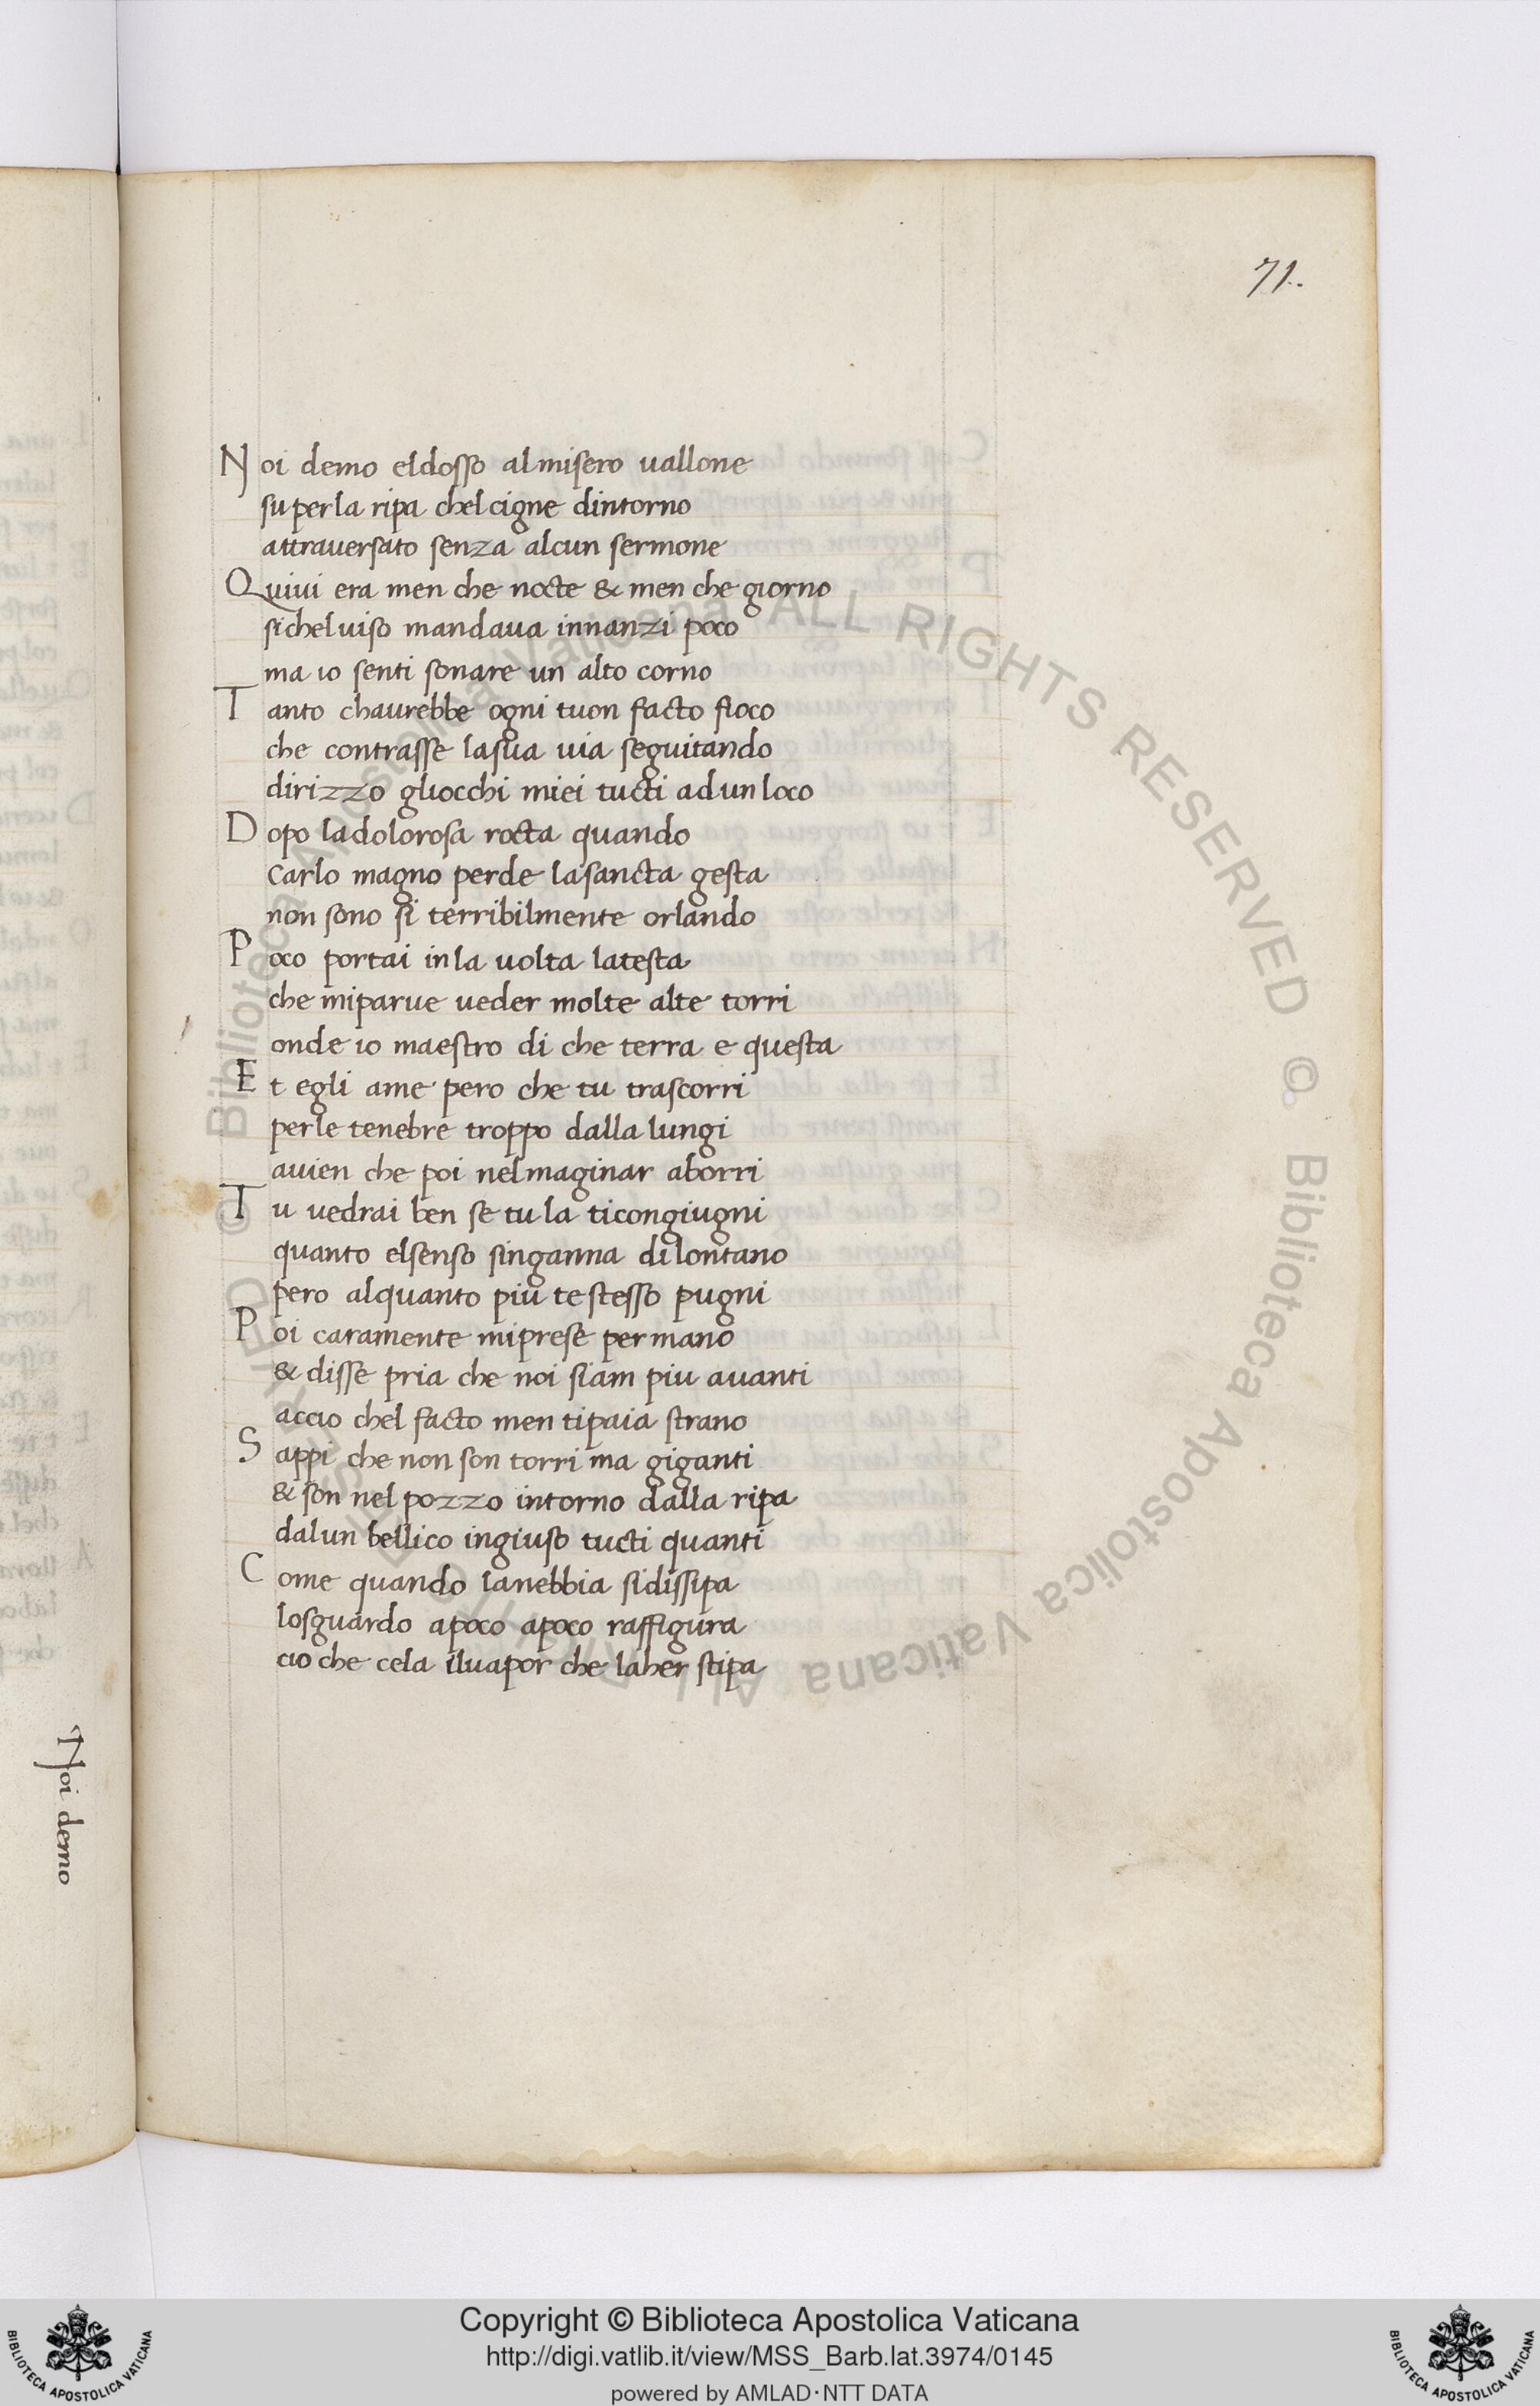 71.
Noi demo eldosso almisero uallone
superla ripa chelcigne dintorno
attrauersato senza alcun sermone
Quiui era men che nocte & men che giorno
sicheluiso mandaua innanzi poco
ma io senti sonare un alto corno
Tanto chaurebbe ogni tuon facto fioco
che contrasse lasua uia seguitando
dirizzo gliocchi miei tucti adunloco
Dopo ladolorosa rocta quando
carlo magno perde lasancta gesta
non sono si terribilmente orlando
Poco portai inla uolta latesta
che miparue ueder molte alte torri
onde io maestro di che terra e questa
Et egli ame pero che tu trascorri
perle tenebre troppo dalla lungi
auien che poi nelmaginar aborri
Tu uedrai ben se tu la ticongiugni
quanto elsenso singanna dilontano
pero alquanto piu te stesso pugni
Poi caramente miprese per mano
& disse pria che noi siam piu auanti
accio chel facto men tipaia strano
Sappi che non son torri ma giganti
& son nel pozzo intorno dalla ripa
dalun bellico ingiuso tucti quanti
Come quando lanebbia sidissipa
losguardo apoco apoco raffigura
cio che cela iluapor che laher stipa
Noi demo
© Biblioteca Apostolica Vaticana ALL RIGHTS RESERVED © Biblioteca Apostolica Vaticana ALL RIGHTS RESERVED
Copyright © Biblioteca Apostolica Vaticana
http://digi.vatlib.it/view/MSS_Barb.lat.3974/0145
powered by AMLAD·NTT DATA
BIBLIOTECA APOSTOLICA VATICANA
BIBLIOTECA APOSTOLICA VATICANA